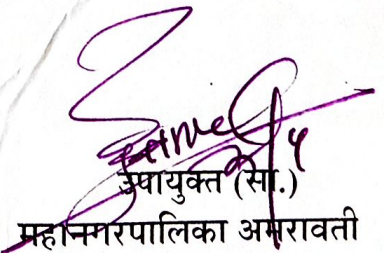 उपायुक्त (सा.)
महानगरपालिका अमरावती